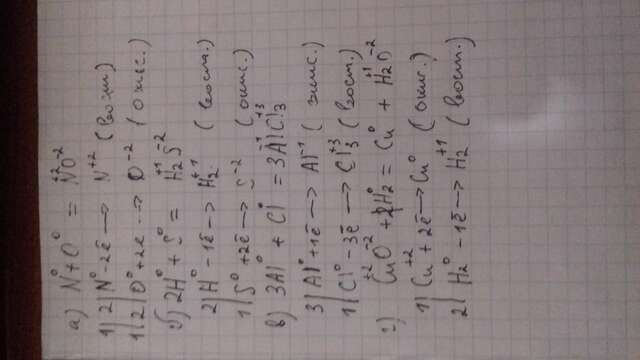 а) N⁰ + O⁰ = N⁺²O⁻²
1) 2| N⁰ - 2ē → N⁺² (восст.)
1) 2| O⁰ + 2ē → O⁻² (окис.)
б) 2H⁰ + S⁰ = H₂⁺¹S⁻²
2| H⁰ - 1ē → H₂⁺¹ (восст.)
1| S⁰ + 2ē → S⁻² (окис.)
в) 3Al⁰ + Cl⁰ = 3Al⁻¹Cl₃⁺³
3| Al⁰ + 1ē → Al⁻¹ (окис.)
1| Cl⁰ - 3ē → Cl₃⁺³ (восст.)
г) Cu⁺²O⁻² + H₂⁰ = Cu⁰ + H₂⁺¹O⁻²
1| Cu⁺² + 2ē → Cu⁰ (окис.)
2| H₂⁰ - 1ē → H₂⁺¹ (восст.)